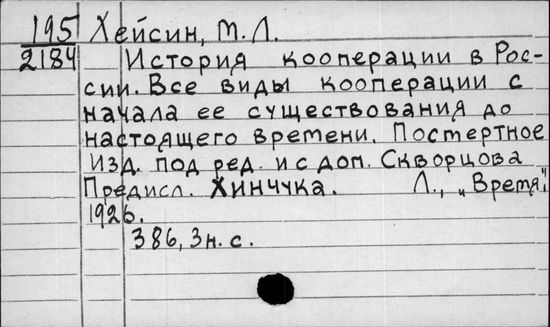 195 Хейсин, М. Л.
2184 История кооперации в Рос-
сии. Все виды кооперации с
начала ее существования до
настоящего времени. Постертное
Изд. под ред. и с доп. Скворцова
Предисл. Хинчука. Л., „Время".
1926.
386, 3 н. с.